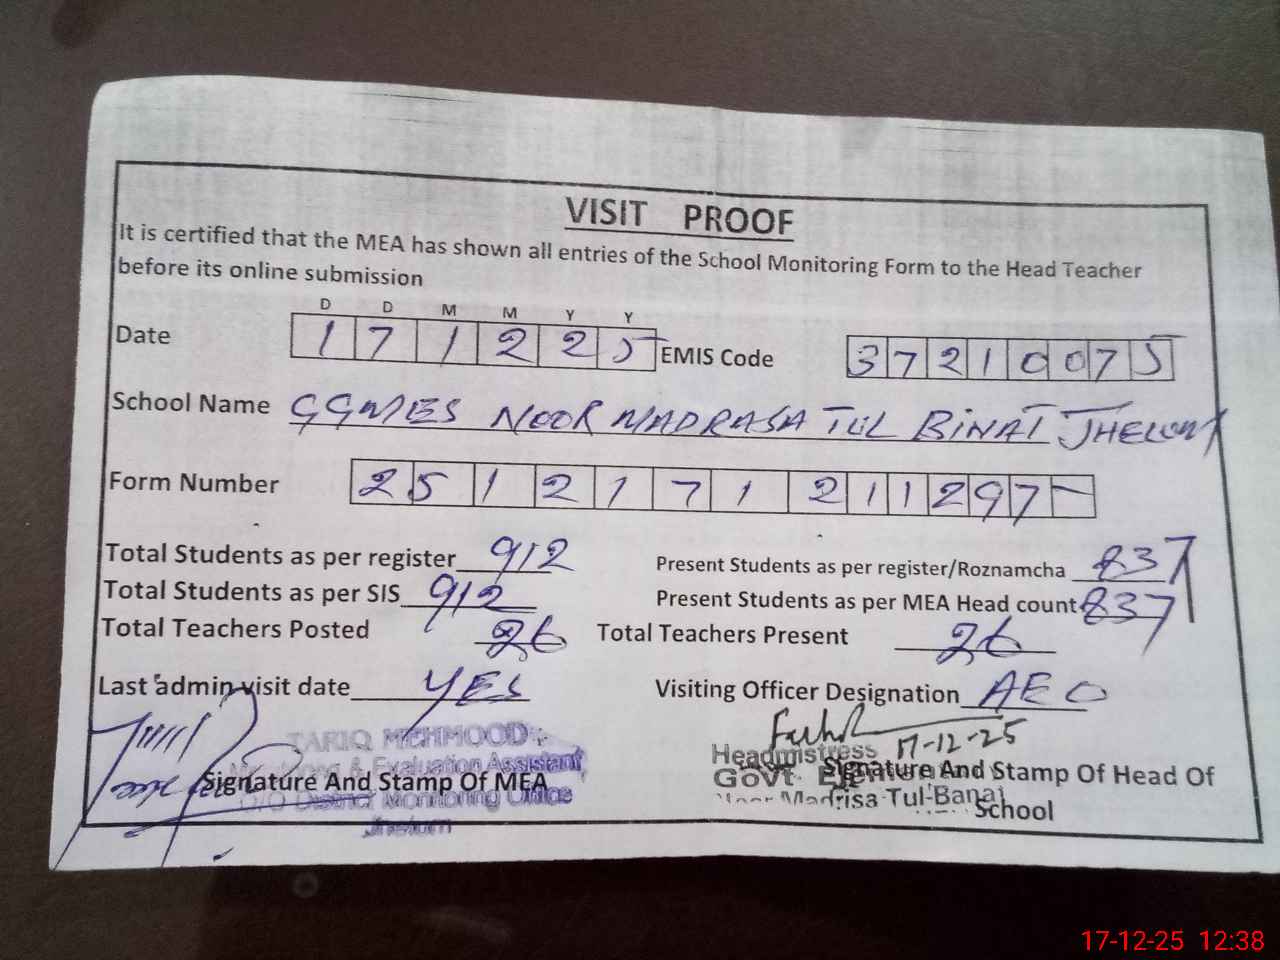 VISIT PROOF
It is certified that the MEA has shown all entries of the School Monitoring Form to the Head Teacher
before its online submission
D D M M Y Y
Date 1 7 1 2 2 5 EMIS Code 3 7 2 1 0 0 7 5
School Name GGMES NOOR MADRASA TUL BINAT JHELUM
Form Number 2 5 1 2 1 7 1 2 1 1 2 9 7 -
Total Students as per register 912 Present Students as per register/Roznamcha 837
Total Students as per SIS 912 Present Students as per MEA Head count 837
Total Teachers Posted 26 Total Teachers Present 26
Last admin visit date YES Visiting Officer Designation AEO
TARIQ MEHMOOD
Monitoring & Evaluation Assistant
Signature And Stamp Of MEA
O/O District Monitoring Office
Jhelum
17-12-25
Headmistress
Signature And Stamp Of Head Of
Govt.
Noor Madrisa Tul-Banat
School
17-12-25 12:38